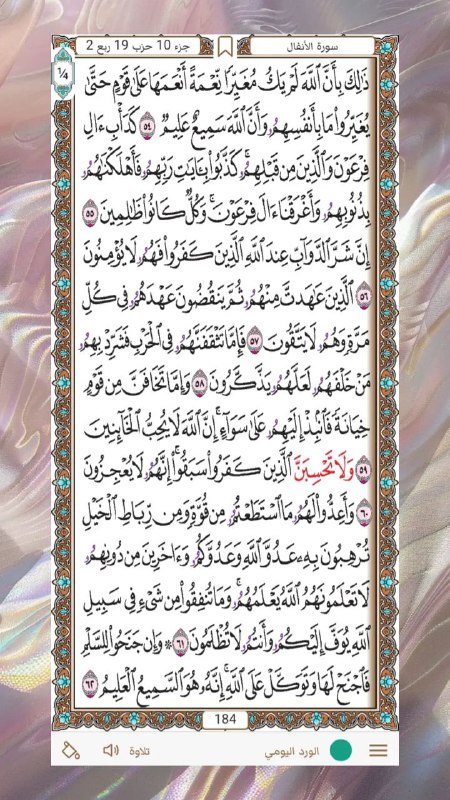 سورة الأنفال
جزء 10 حزب 19 ربع 2
¼
ذَٰلِكَ بِأَنَّ ٱللَّهَ لَمْ يَكُ مُغَيِّرًا نِّعْمَةً أَنْعَمَهَا عَلَىٰ قَوْمٍ حَتَّىٰ
يُغَيِّرُوا۟ مَا بِأَنفُسِهِمُۥ وَأَنَّ ٱللَّهَ سَمِيعٌ عَلِيمٌ ٥٤ كَدَأْبِ ءَالِ
فِرْعَوْنَ وَٱلَّذِينَ مِن قَبْلِهِمُۥ كَذَّبُوا۟ بِـَٔايَٰتِ رَبِّهِمُۥ فَأَهْلَكْنَٰهُمُۥ
بِذُنُوبِهِمُۥ وَأَغْرَقْنَا ءَالَ فِرْعَوْنَ وَكُلٌّ كَانُوا۟ ظَٰلِمِينَ ٥٥
إِنَّ شَرَّ ٱلدَّوَآبِّ عِندَ ٱللَّهِ ٱلَّذِينَ كَفَرُوا۟ فَهُمُۥ لَا يُؤْمِنُونَ
٥٦ ٱلَّذِينَ عَٰهَدتَّ مِنْهُمُۥ ثُمَّ يَنقُضُونَ عَهْدَهُمُۥ فِى كُلِّ
مَرَّةٍ وَهُمُۥ لَا يَتَّقُونَ ٥٧ فَإِمَّا تَثْقَفَنَّهُمُۥ فِى ٱلْحَرْبِ فَشَرِّدْ بِهِمُۥ
مَنْ خَلْفَهُمُۥ لَعَلَّهُمُۥ يَذَّكَّرُونَ ٥٨ وَإِمَّا تَخَافَنَّ مِن قَوْمٍ
خِيَانَةً فَٱنۢبِذْ إِلَيْهِمُۥ عَلَىٰ سَوَآءٍ إِنَّ ٱللَّهَ لَا يُحِبُّ ٱلْخَآئِنِينَ
٥٩ وَلَا تَحْسِبَنَّ ٱلَّذِينَ كَفَرُوا۟ سَبَقُوٓا۟ إِنَّهُمُۥ لَا يُعْجِزُونَ
٦٠ وَأَعِدُّوا۟ لَهُمُۥ مَا ٱسْتَطَعْتُمُۥ مِن قُوَّةٍ وَمِن رِّبَاطِ ٱلْخَيْلِ
تُرْهِبُونَ بِهِۦ عَدُوَّ ٱللَّهِ وَعَدُوَّكُمُۥ وَءَاخَرِينَ مِن دُونِهِمُۥ
لَا تَعْلَمُونَهُمُ ٱللَّهُ يَعْلَمُهُمُۥ وَمَا تُنفِقُوا۟ مِن شَىْءٍ فِى سَبِيلِ
ٱللَّهِ يُوَفَّ إِلَيْكُمُۥ وَأَنتُمُۥ لَا تُظْلَمُونَ ٦١ ۞ وَإِن جَنَحُوا۟ لِلسَّلْمِ
فَٱجْنَحْ لَهَا وَتَوَكَّلْ عَلَى ٱللَّهِ إِنَّهُۥ هُوَ ٱلسَّمِيعُ ٱلْعَلِيمُ ٦٢
184
الورد اليومي
تلاوة